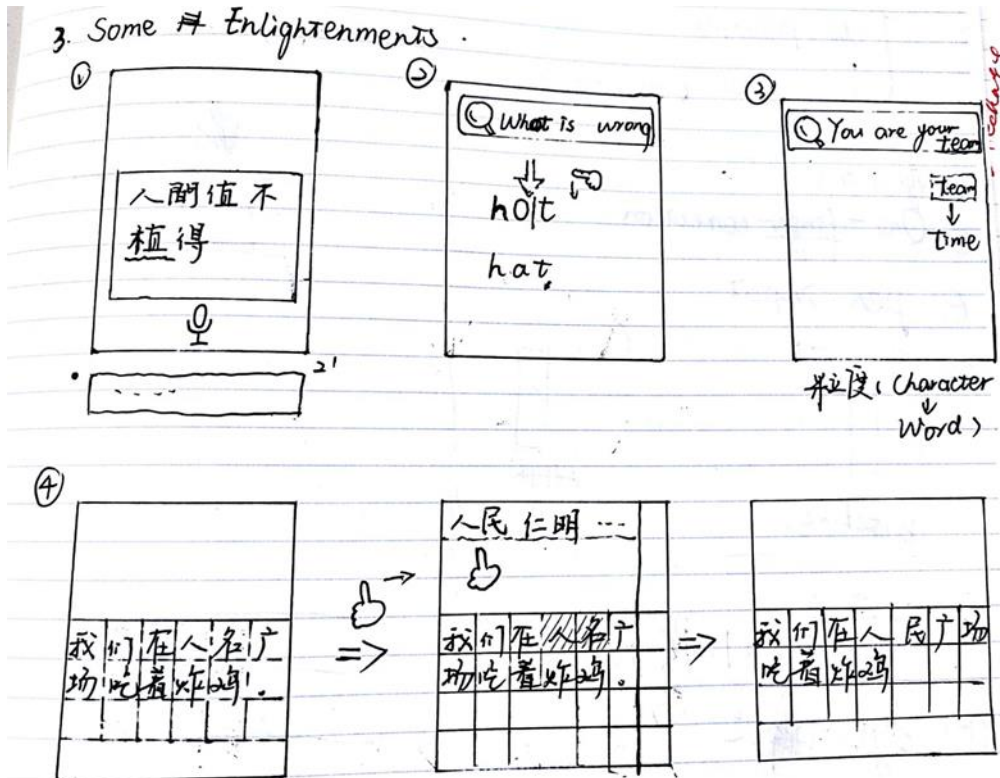 3. Some Enlightenments.
①
人間值不
植得
2'
②
What is wrong
hot
hat
③
You are your team
team
time
粒度(Character
Word)
④
我们在人名广
场吃着炸鸡。
人民 仁明 ...
我们在人名广
场吃着炸鸡。
我们在人民广场
吃着炸鸡